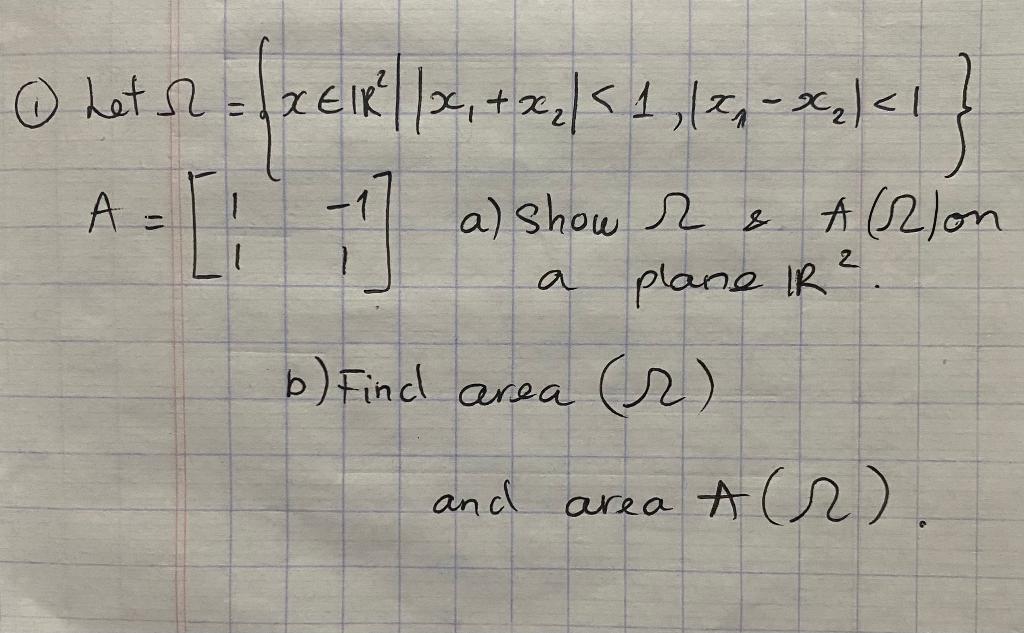 ① Let Ω = {x ∈ ℝ² | |x₁ + x₂| < 1, |x₁ - x₂| < 1}
A = [1 -1 a) Show Ω & A(Ω) on
1 1] a plane ℝ².
b) Find area (Ω)
and area A(Ω).